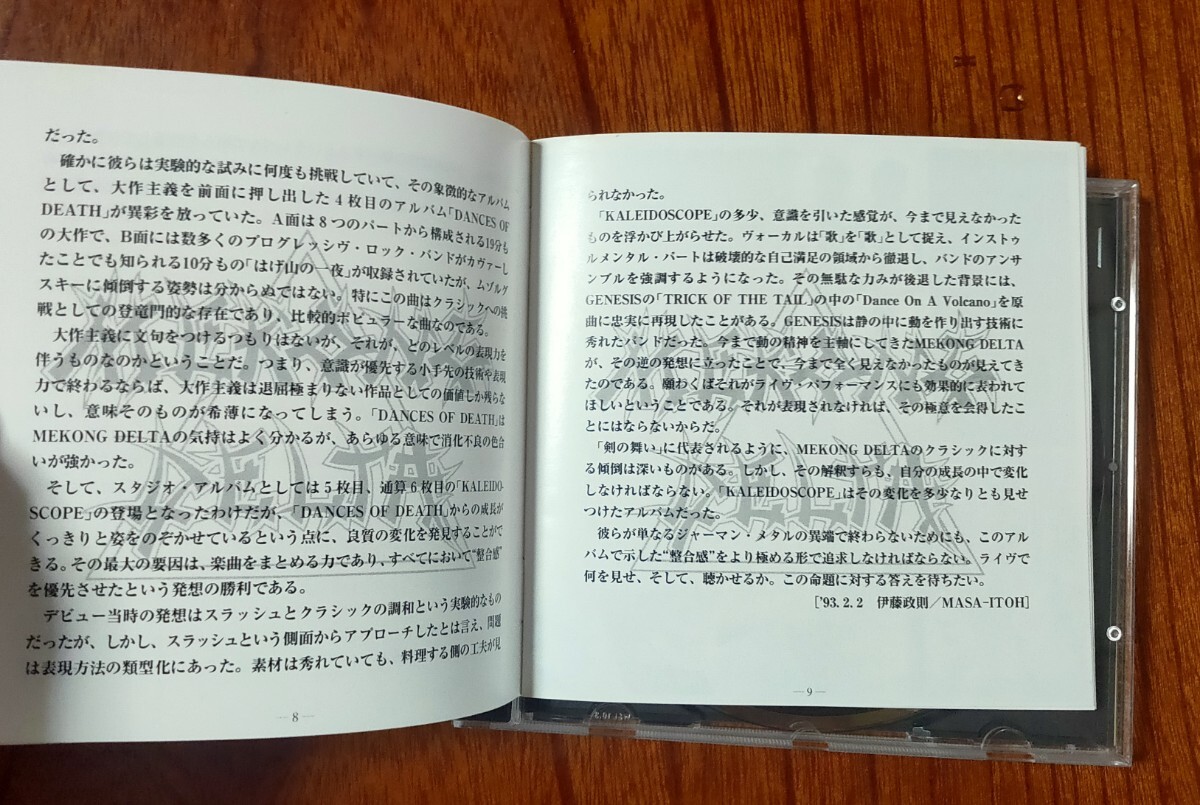 だった。
確かに彼らは実験的な試みに何度も挑戦していて、その象徴的なアルバム
として、大作主義を前面に押し出した4枚目のアルバム「DANCES OF
DEATH」が異彩を放っていた。A面は8つのパートから構成される19分も
の大作で、B面には数多くのプログレッシヴ・ロック・バンドがカヴァーし
たことでも知られる10分もの「はげ山の一夜」が収録されていたが、ムゾルグ
スキーに傾倒する姿勢は分からぬではない。特にこの曲はクラシックへの挑
戦としての登竜門的な存在であり、比較的ポピュラーな曲なのである。
大作主義に文句をつけるつもりはないが、それが、どのレベルの表現力を
伴うものなのかということだ。つまり、意識が優先する小手先の技術や表現
力で終わるならば、大作主義は退屈極まりない作品としての価値しか残らな
いし、意味そのものが希薄になってしまう。「DANCES OF DEATH」は
MEKONG DELTAの気持はよく分かるが、あらゆる意味で消化不良の色合
いが強かった。
そして、スタジオ・アルバムとしては5枚目、通算6枚目の「KALEIDO-
SCOPE」の登場となったわけだが、「DANCES OF DEATH」からの成長が
くっきりと姿をのぞかせているという点に、良質の変化を発見することがで
きる。その最大の要因は、楽曲をまとめる力であり、すべてにおいて“整合感”
を優先させたという発想の勝利である。
デビュー当時の発想はスラッシュとクラシックの調和という実験的なもの
だったが、しかし、スラッシュという側面からアプローチしたとは言え、問題
は表現方法の類型化にあった。素材は秀れていても、料理する側の工夫が見
—8—
られなかった。
「KALEIDOSCOPE」の多少、意識を引いた感覚が、今まで見えなかった
ものを浮かび上がらせた。ヴォーカルは「歌」を「歌」として捉え、インストゥ
ルメンタル・パートは破壊的な自己満足の領域から撤退し、バンドのアンサ
ンブルを強調するようになった。その無駄な力みが後退した背景には、
GENESISの「TRICK OF THE TAIL」の中の「Dance On A Volcano」を原
曲に忠実に再現したことがある。GENESISは静の中に動を作り出す技術に
秀れたバンドだった。今まで動の精神を主軸にしてきたMEKONG DELTA
が、その逆の発想に立ったことで、今まで全く見えなかったものが見えてき
たのである。願わくばそれがライヴ・パフォーマンスにも効果的に表われて
ほしいということである。それが表現されなければ、その極意を会得したこ
とにはならないからだ。
「剣の舞い」に代表されるように、MEKONG DELTAのクラシックに対す
る傾倒は深いものがある。しかし、その解釈すらも、自分の成長の中で変化
しなければならない。「KALEIDOSCOPE」はその変化を多少なりとも見せ
つけたアルバムだった。
彼らが単なるジャーマン・メタルの異端で終わらないためにも、このアル
バムで示した“整合感”をより極める形で追求しなければならない。ライヴで
何を見せ、そして、聴かせるか。この命題に対する答えを待ちたい。
[’93. 2. 2 伊藤政則／MASA-ITOH]
—9—
MEKONG
DELTA
MEKONG
DELTA